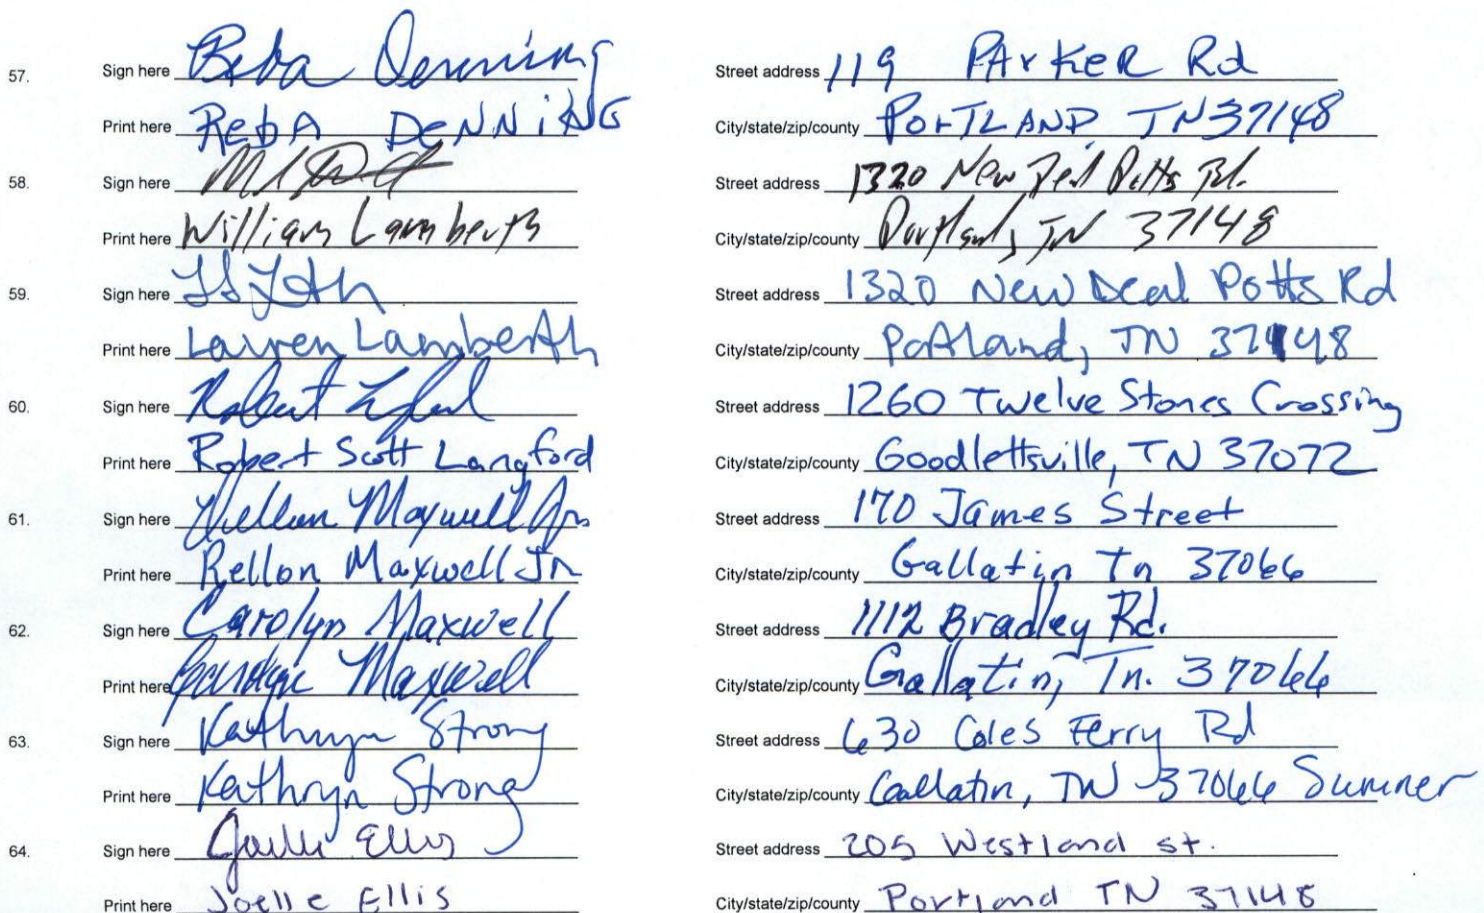 57. Sign here Reba Denning Street address 119 PArKER Rd
Print here RebA DeNNiNG City/state/zip/county PorTLAND, TN 37148
58. Sign here Street address 1320 New Deal Potts Rd.
Print here William Lamberth City/state/zip/county Portland, TN 37148
59. Sign here Street address 1320 New Deal Potts Rd
Print here Lauren Lamberth City/state/zip/county Portland, TN 37148
60. Sign here Robert Street address 1260 Twelve Stones Crossing
Print here Robert Scott Langford City/state/zip/county Goodlettsville, TN 37072
61. Sign here Maxwell Jr Street address 170 James Street
Print here Rellon Maxwell Jr City/state/zip/county Gallatin Tn 37066
62. Sign here Carolyn Maxwell Street address 1112 Bradley Rd.
Print here Carolyn Maxwell City/state/zip/county Gallatin, Tn. 37066
63. Sign here Kathryn Strong Street address 630 Coles Ferry Rd
Print here Kathryn Strong City/state/zip/county Gallatin, TN 37066 Sumner
64. Sign here Joelle Ellis Street address 205 Westland st.
Print here Joelle Ellis City/state/zip/county Portland TN 37148